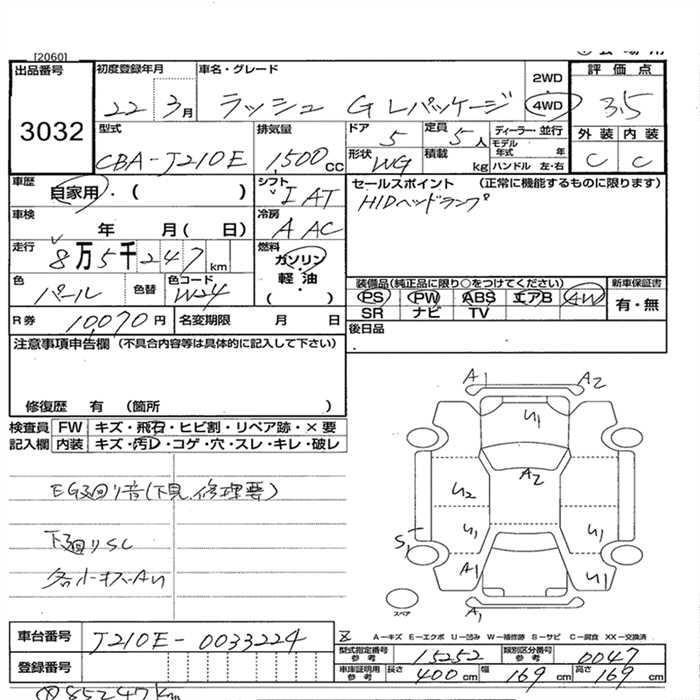 [2060]
出品番号 初度登録年月 車名・グレード 2WD 評価点
3032 22 3月 ラッシュ G Lパッケージ 4WD 3.5
型式 排気量 ドア 定員 ディーラー・並行 外装 内装
CBA-J210E 1,500cc 5 5人 モデル年式 年 C C
形状 WG 積載 kg ハンドル 左・右
車歴 シフト セールスポイント (正常に機能するものに限ります)
自家用・( ) I AT HIDヘッドランプ
車検 年 月( 日) 冷房 A AC
走行 8万5千247km 燃料 ガソリン・軽油( )
色 パール 色替 色コード W24
装備品(純正品に限り○をつけてください) 新車保証書
PS PW ABS エアB AW 有・無
SR ナビ TV
R券 10,070円 名変期限 月 日 後日品
注意事項申告欄 (不具合内容等は具体的に記入して下さい)
修復歴 有 (箇所 )
検査員 FW キズ・飛石・ヒビ割・リペア跡・×要
記入欄 内装 キズ・汚レ・コゲ・穴・スレ・キレ・破レ
A1 A2
U1
A2
U2
U1 U1
S1
A1 U1
A1
スペア
EG廻り音(下見、修理要)
下廻りSC
A-キズ E-エクボ U-凹み W-補修跡 S-サビ C-腐食 XX-交換済
車台番号 J210E-0033224
型式指定番号 参考 15252 類別区分番号 参考 0047
登録番号 車庫証明用 参考 長さ 400cm 幅 169cm 高さ 169cm
85247km